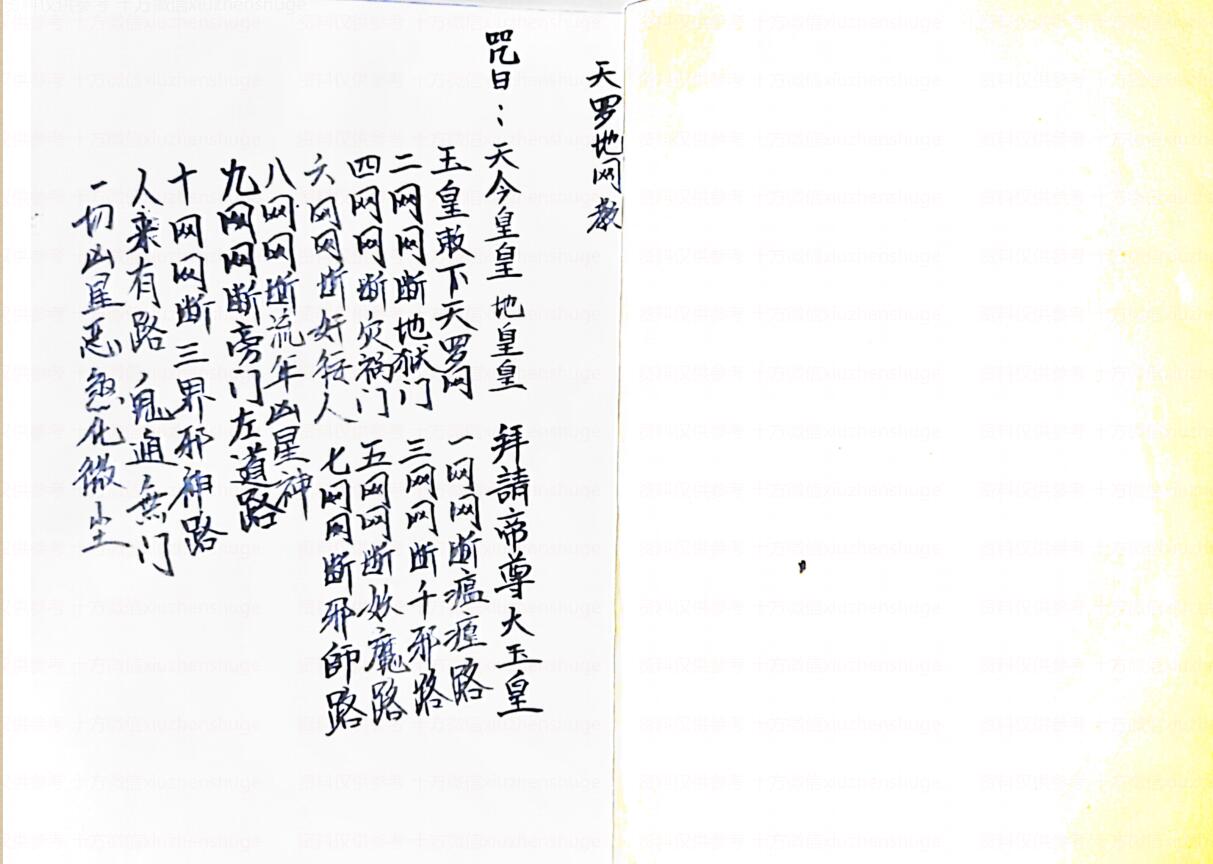 天罗地网教
咒曰：天令皇皇 地皇皇 拜請帝尊大玉皇
玉皇敕下天罗网 一网网断瘟㾮路
二网网断地狱门 三网网断千邪路
四网网断灾祸门 五网网断妖魔路
六网网断奸狂人 七网网断邪師路
八网网断流年凶星神
九网网断旁门左道路
十网网断三界邪神路
人来有路 鬼通無门
一切凶星恶煞化微尘
资料仅供参考 十方微信xiuzhenshuge